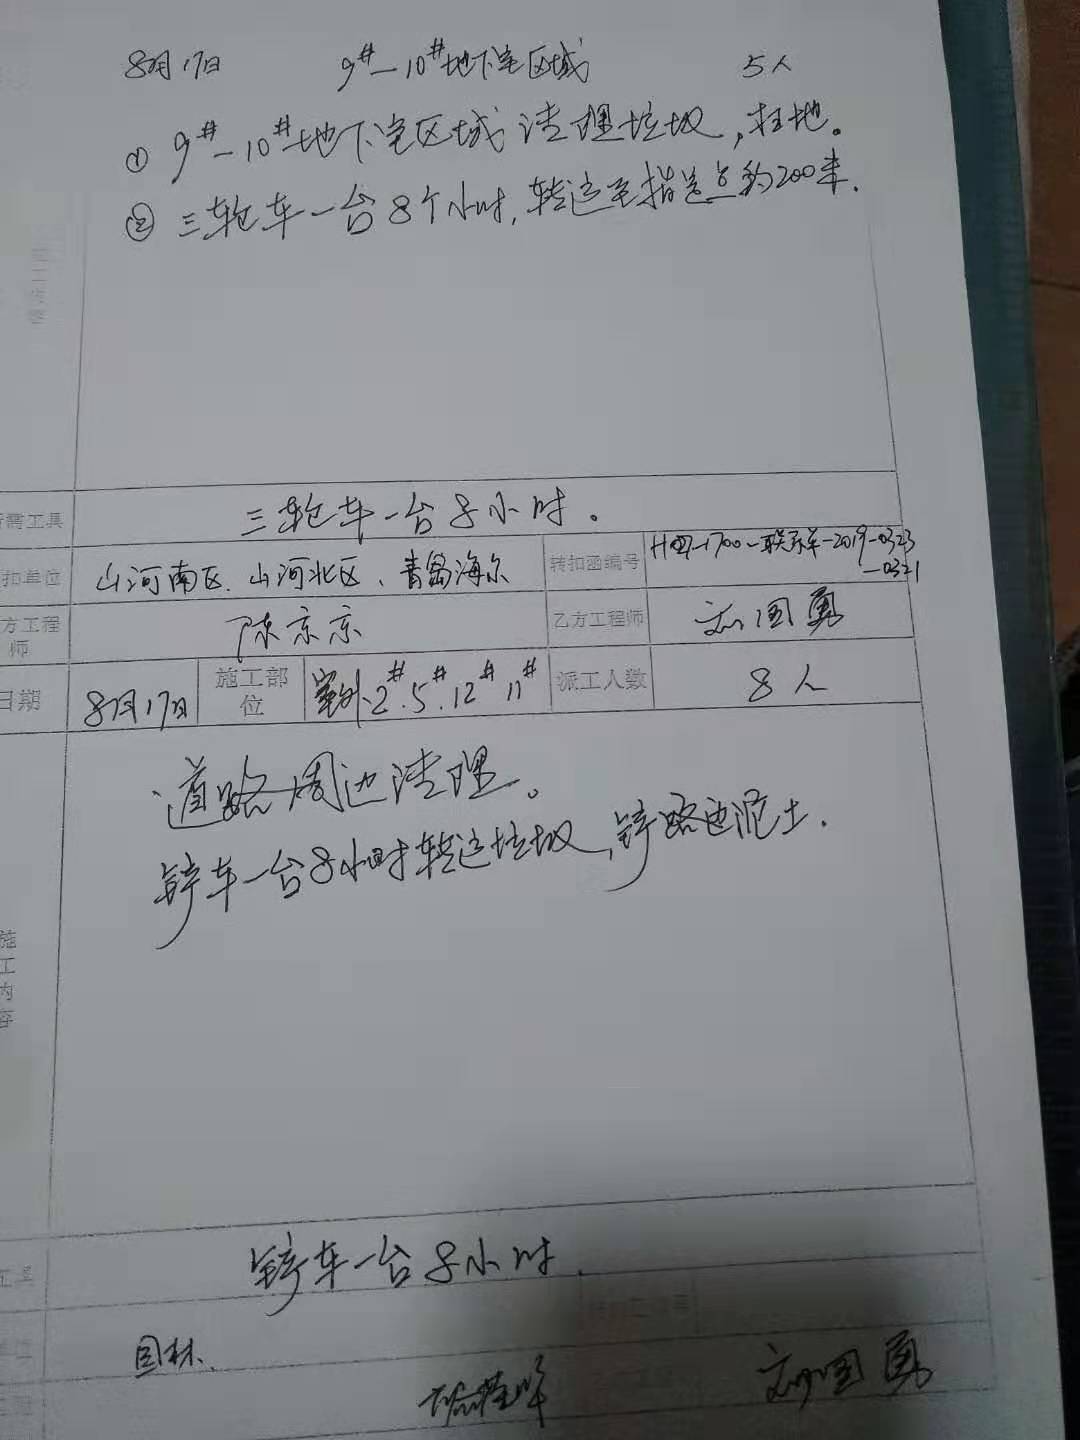 8月17日 9#-10#地下室区域 5人
① 9#-10#地下室区域清理垃圾,扫地。
② 三轮车一台8个小时,转运至指定点约200米.
所需工具 三轮车一台8小时。
扣单位 山河南区、山河北区、青岛海尔 转扣函编号 -1700-联系单-2019-0323
-0321
方工程师 陈京京 乙方工程师 刘国勇
日期 8月17日 施工部位 室外.2#.5#.12# 11# 派工人数 8人
道路周边清理。
铲车一台8小时转运垃圾,铲路边泥土.
施工内容
工具 铲车一台8小时.
单位 园林.
刘国勇